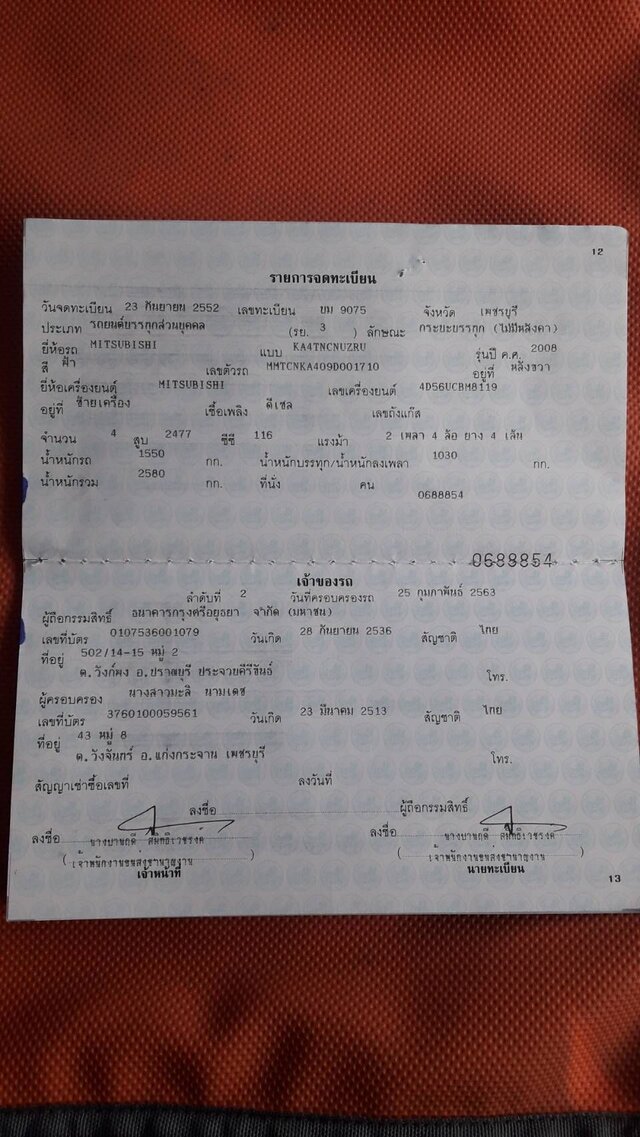 12
รายการจดทะเบียน
วันจดทะเบียน 23 กันยายน 2552 เลขทะเบียน บม 9075 จังหวัด เพชรบุรี
ประเภท รถยนต์บรรทุกส่วนบุคคล (รย. 3 ) ลักษณะ กระบะบรรทุก (ไม่มีหลังคา)
ยี่ห้อรถ MITSUBISHI แบบ KA4TNCNUZRU รุ่นปี ค.ศ. 2008
สี ฟ้า เลขตัวรถ MMTCNKA409D001710 อยู่ที่ หลังขวา
ยี่ห้อเครื่องยนต์ MITSUBISHI เลขเครื่องยนต์ 4D56UCBM8119
อยู่ที่ ซ้ายเครื่อง เชื้อเพลิง ดีเซล เลขถังแก๊ส
จำนวน 4 สูบ 2477 ซีซี 116 แรงม้า 2 เพลา 4 ล้อ ยาง 4 เส้น
น้ำหนักรถ 1550 กก. น้ำหนักบรรทุก/น้ำหนักลงเพลา 1030 กก.
น้ำหนักรวม 2580 กก. ที่นั่ง คน
0688854
0688854
เจ้าของรถ
ลำดับที่ 2 วันที่ครอบครองรถ 25 กุมภาพันธ์ 2563
ผู้ถือกรรมสิทธิ์ ธนาคารกรุงศรีอยุธยา จำกัด (มหาชน)
เลขที่บัตร 0107536001079 วันเกิด 28 กันยายน 2536 สัญชาติ ไทย
ที่อยู่ 502/14-15 หมู่ 2
ต.วังก์พง อ.ปราณบุรี ประจวบคีรีขันธ์ โทร.
ผู้ครอบครอง นางสาวมะลิ นามเดช
เลขที่บัตร 3760100059561 วันเกิด 23 มีนาคม 2513 สัญชาติ ไทย
ที่อยู่ 43 หมู่ 8
ต.วังจันทร์ อ.แก่งกระจาน เพชรบุรี โทร.
สัญญาเช่าซื้อเลขที่ ลงวันที่
ลงชื่อ ผู้ถือกรรมสิทธิ์
ลงชื่อ ลงชื่อ
(เจ้าพนักงานขนส่งชำนาญงาน) (เจ้าพนักงานขนส่งชำนาญงาน)
เจ้าหน้าที่ นายทะเบียน
13